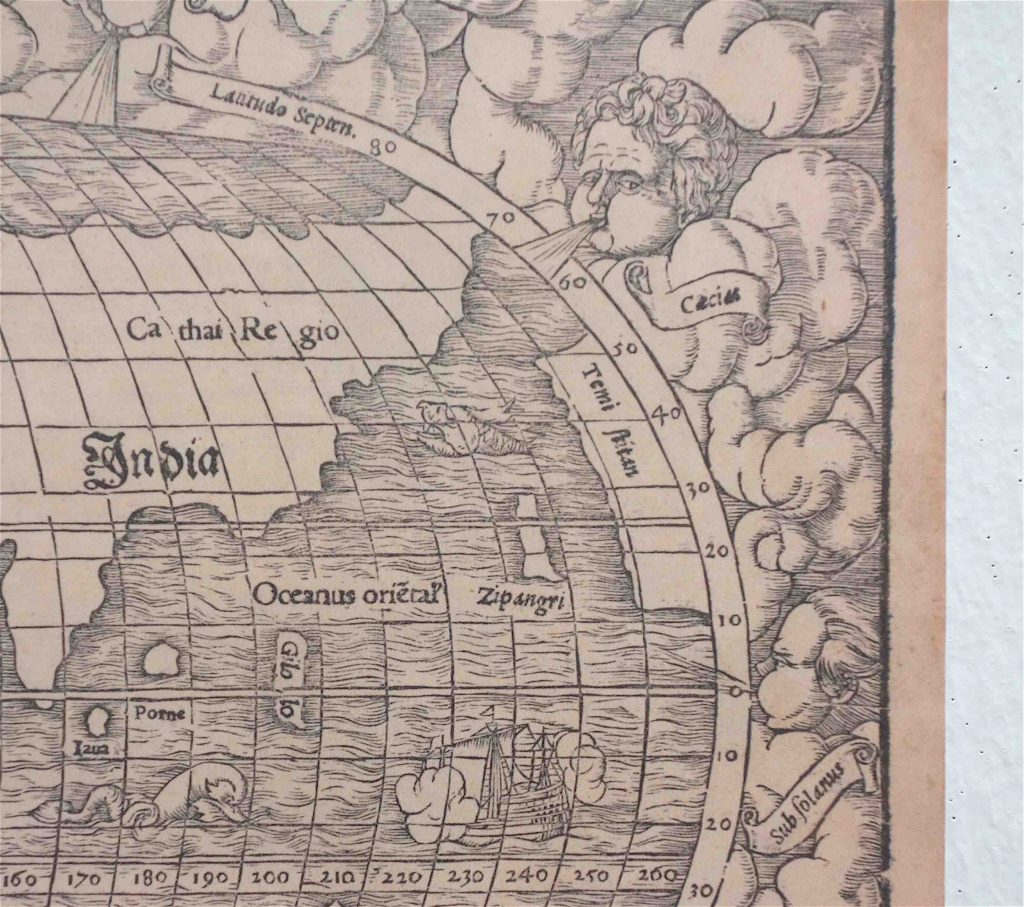 Latitudo Septen.
80
70
60
50
40
30
20
10
0
10
20
30
Cæcias
Ca thai Re gio
Temi
ſtitan
India
Oceanus oriẽtal
Zipangri
Gilo lo
Porne
Iaua
Sub ſolanus
160 170 180 190 200 210 220 230 240 250 260